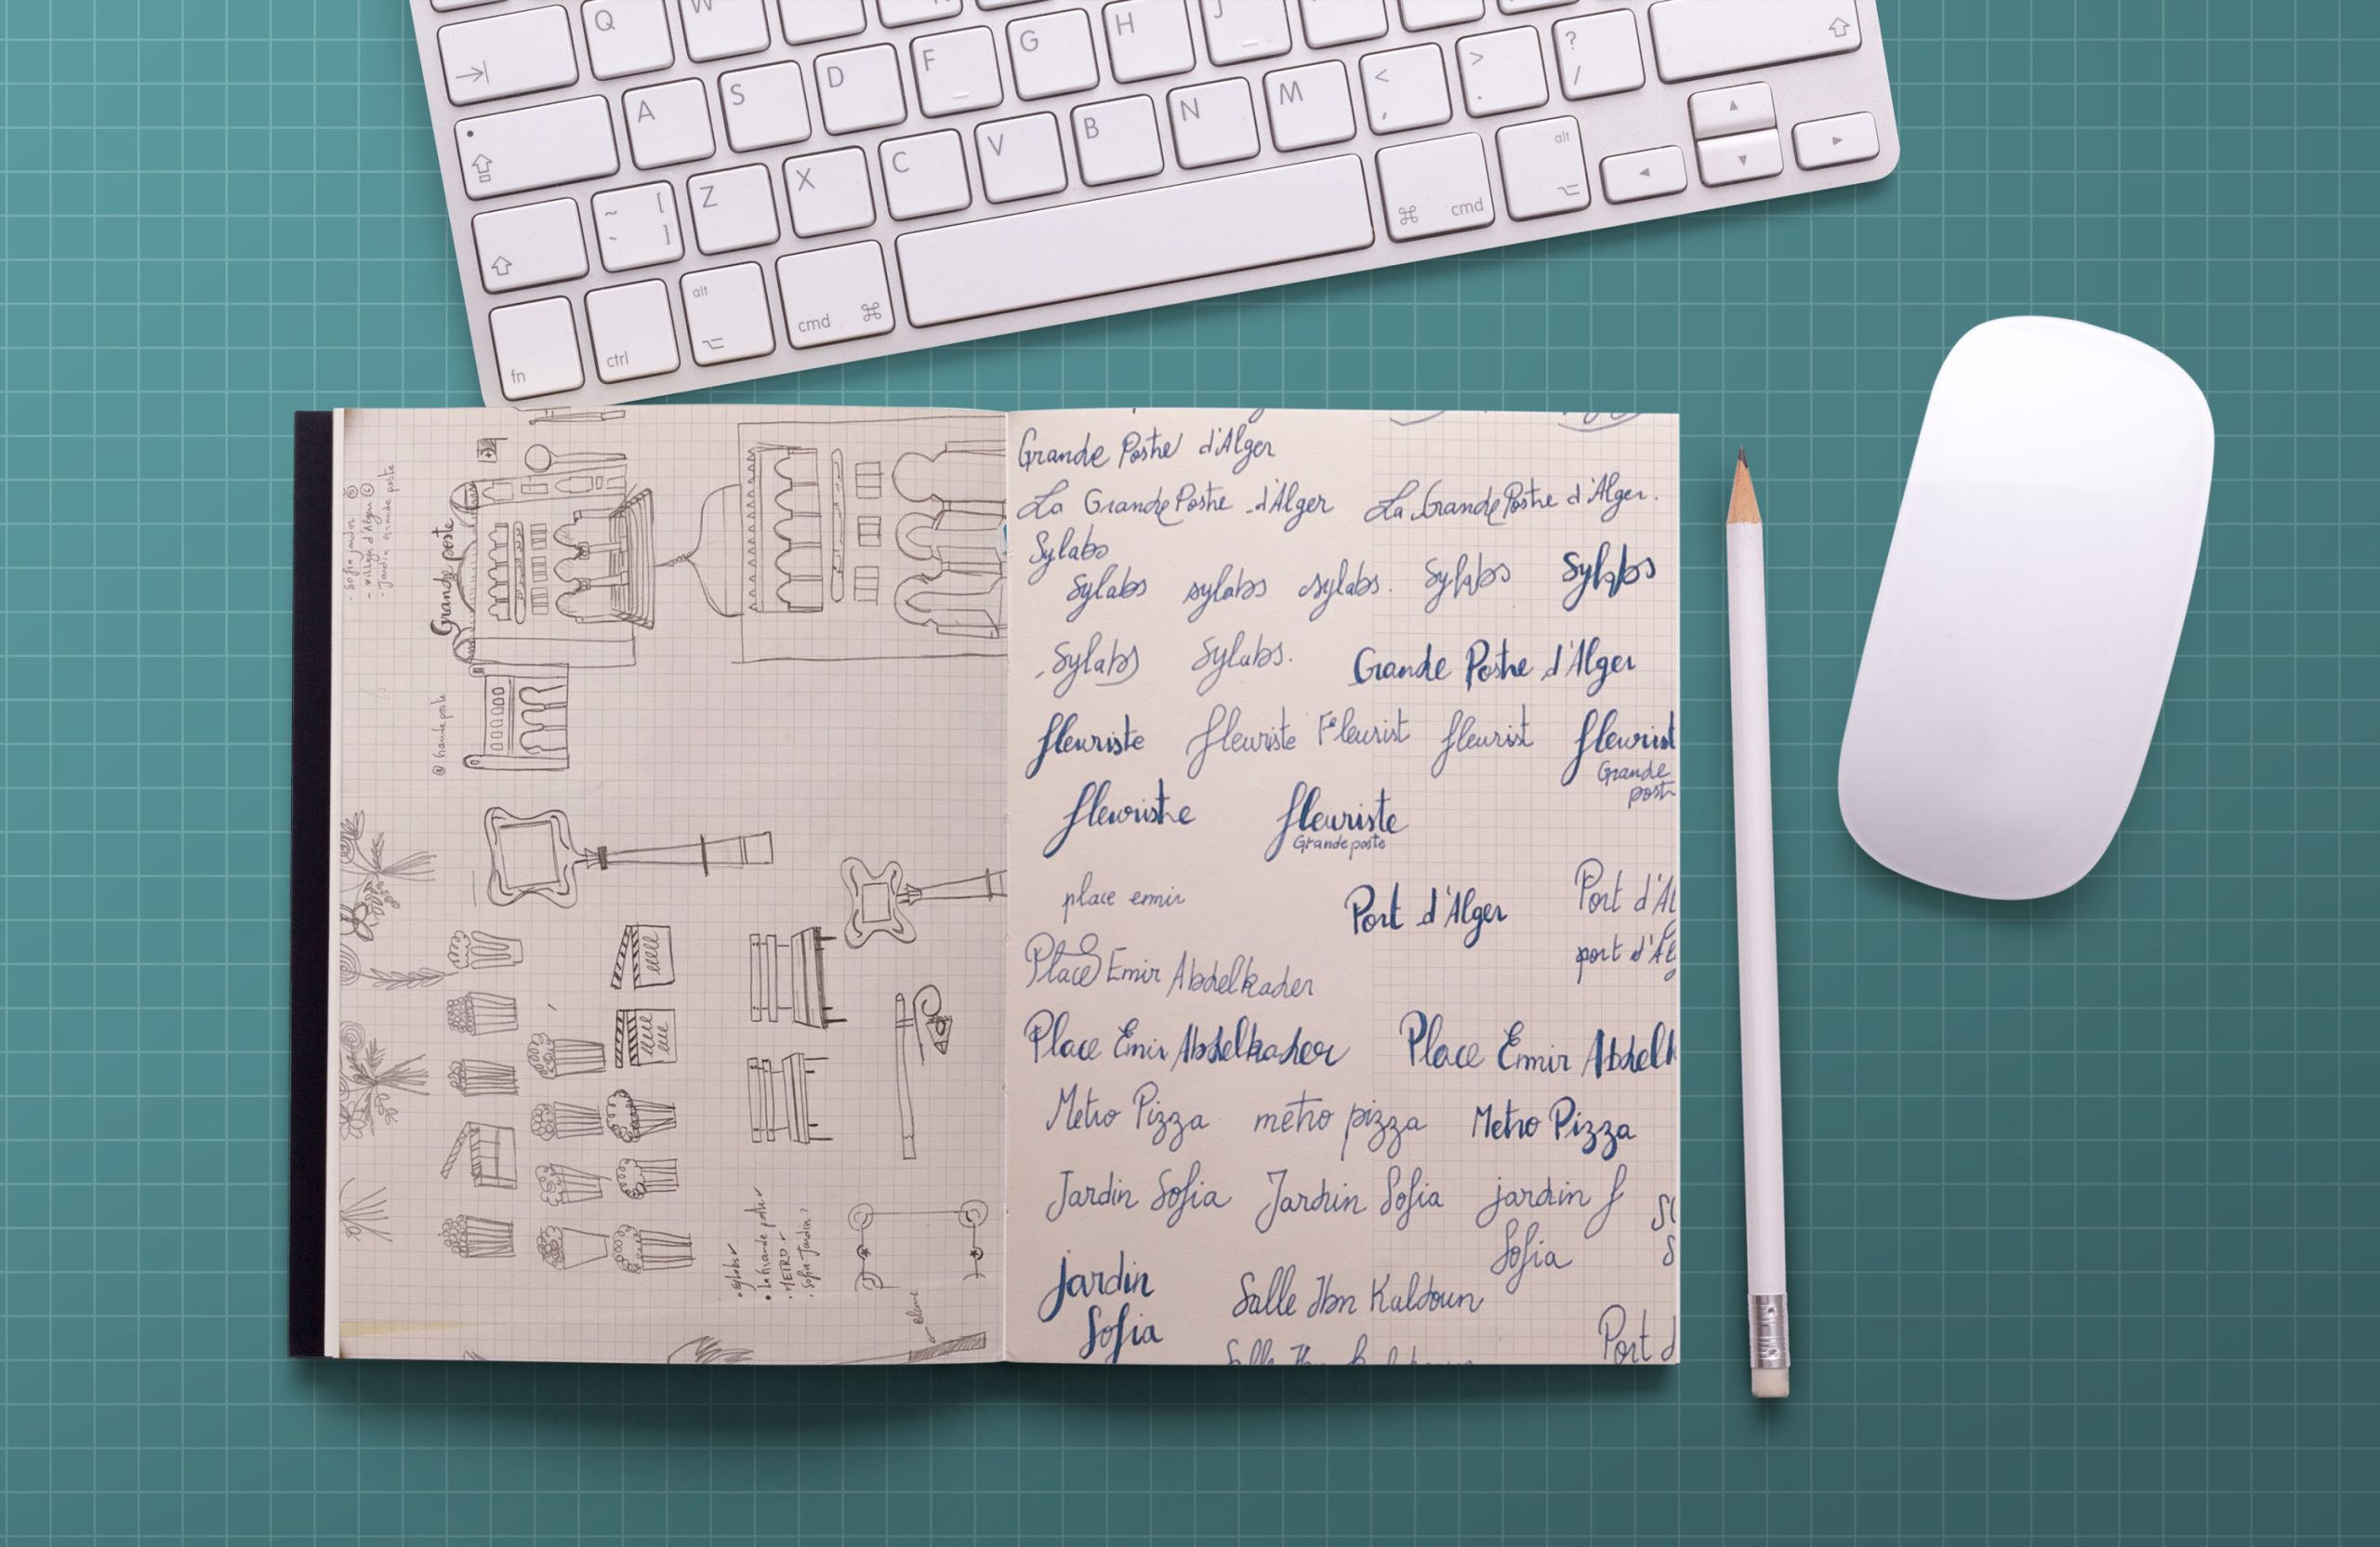 Q W
G H J
A S D F
Z X C V B N M < , > . ? /
~ ` [ ]
alt cmd
fn ctrl alt cmd
Grande poste
@ Grande poste
METRO
Grande Poste d'Alger
La Grande Poste d'Alger La Grande Poste d'Alger.
Sylabs
Sylabs sylabs sylabs. Sylabs Sylabs
Sylabs Sylabs. Grande Poste d'Alger
fleuriste fleuriste Fleurist fleurist fleurist
Grande
post
fleuriste fleuriste
Grande poste
place emir Port d'Alger Port d'Al
port d'Al
Place Emir Abdelkader
Place Emir Abdelkader Place Emir Abdelk
Metro Pizza metro pizza Metro Pizza
Jardin Sofia Jardin Sofia jardin f
Sofia
jardin
Sofia
Salle Ibn Kaldoun
Port d